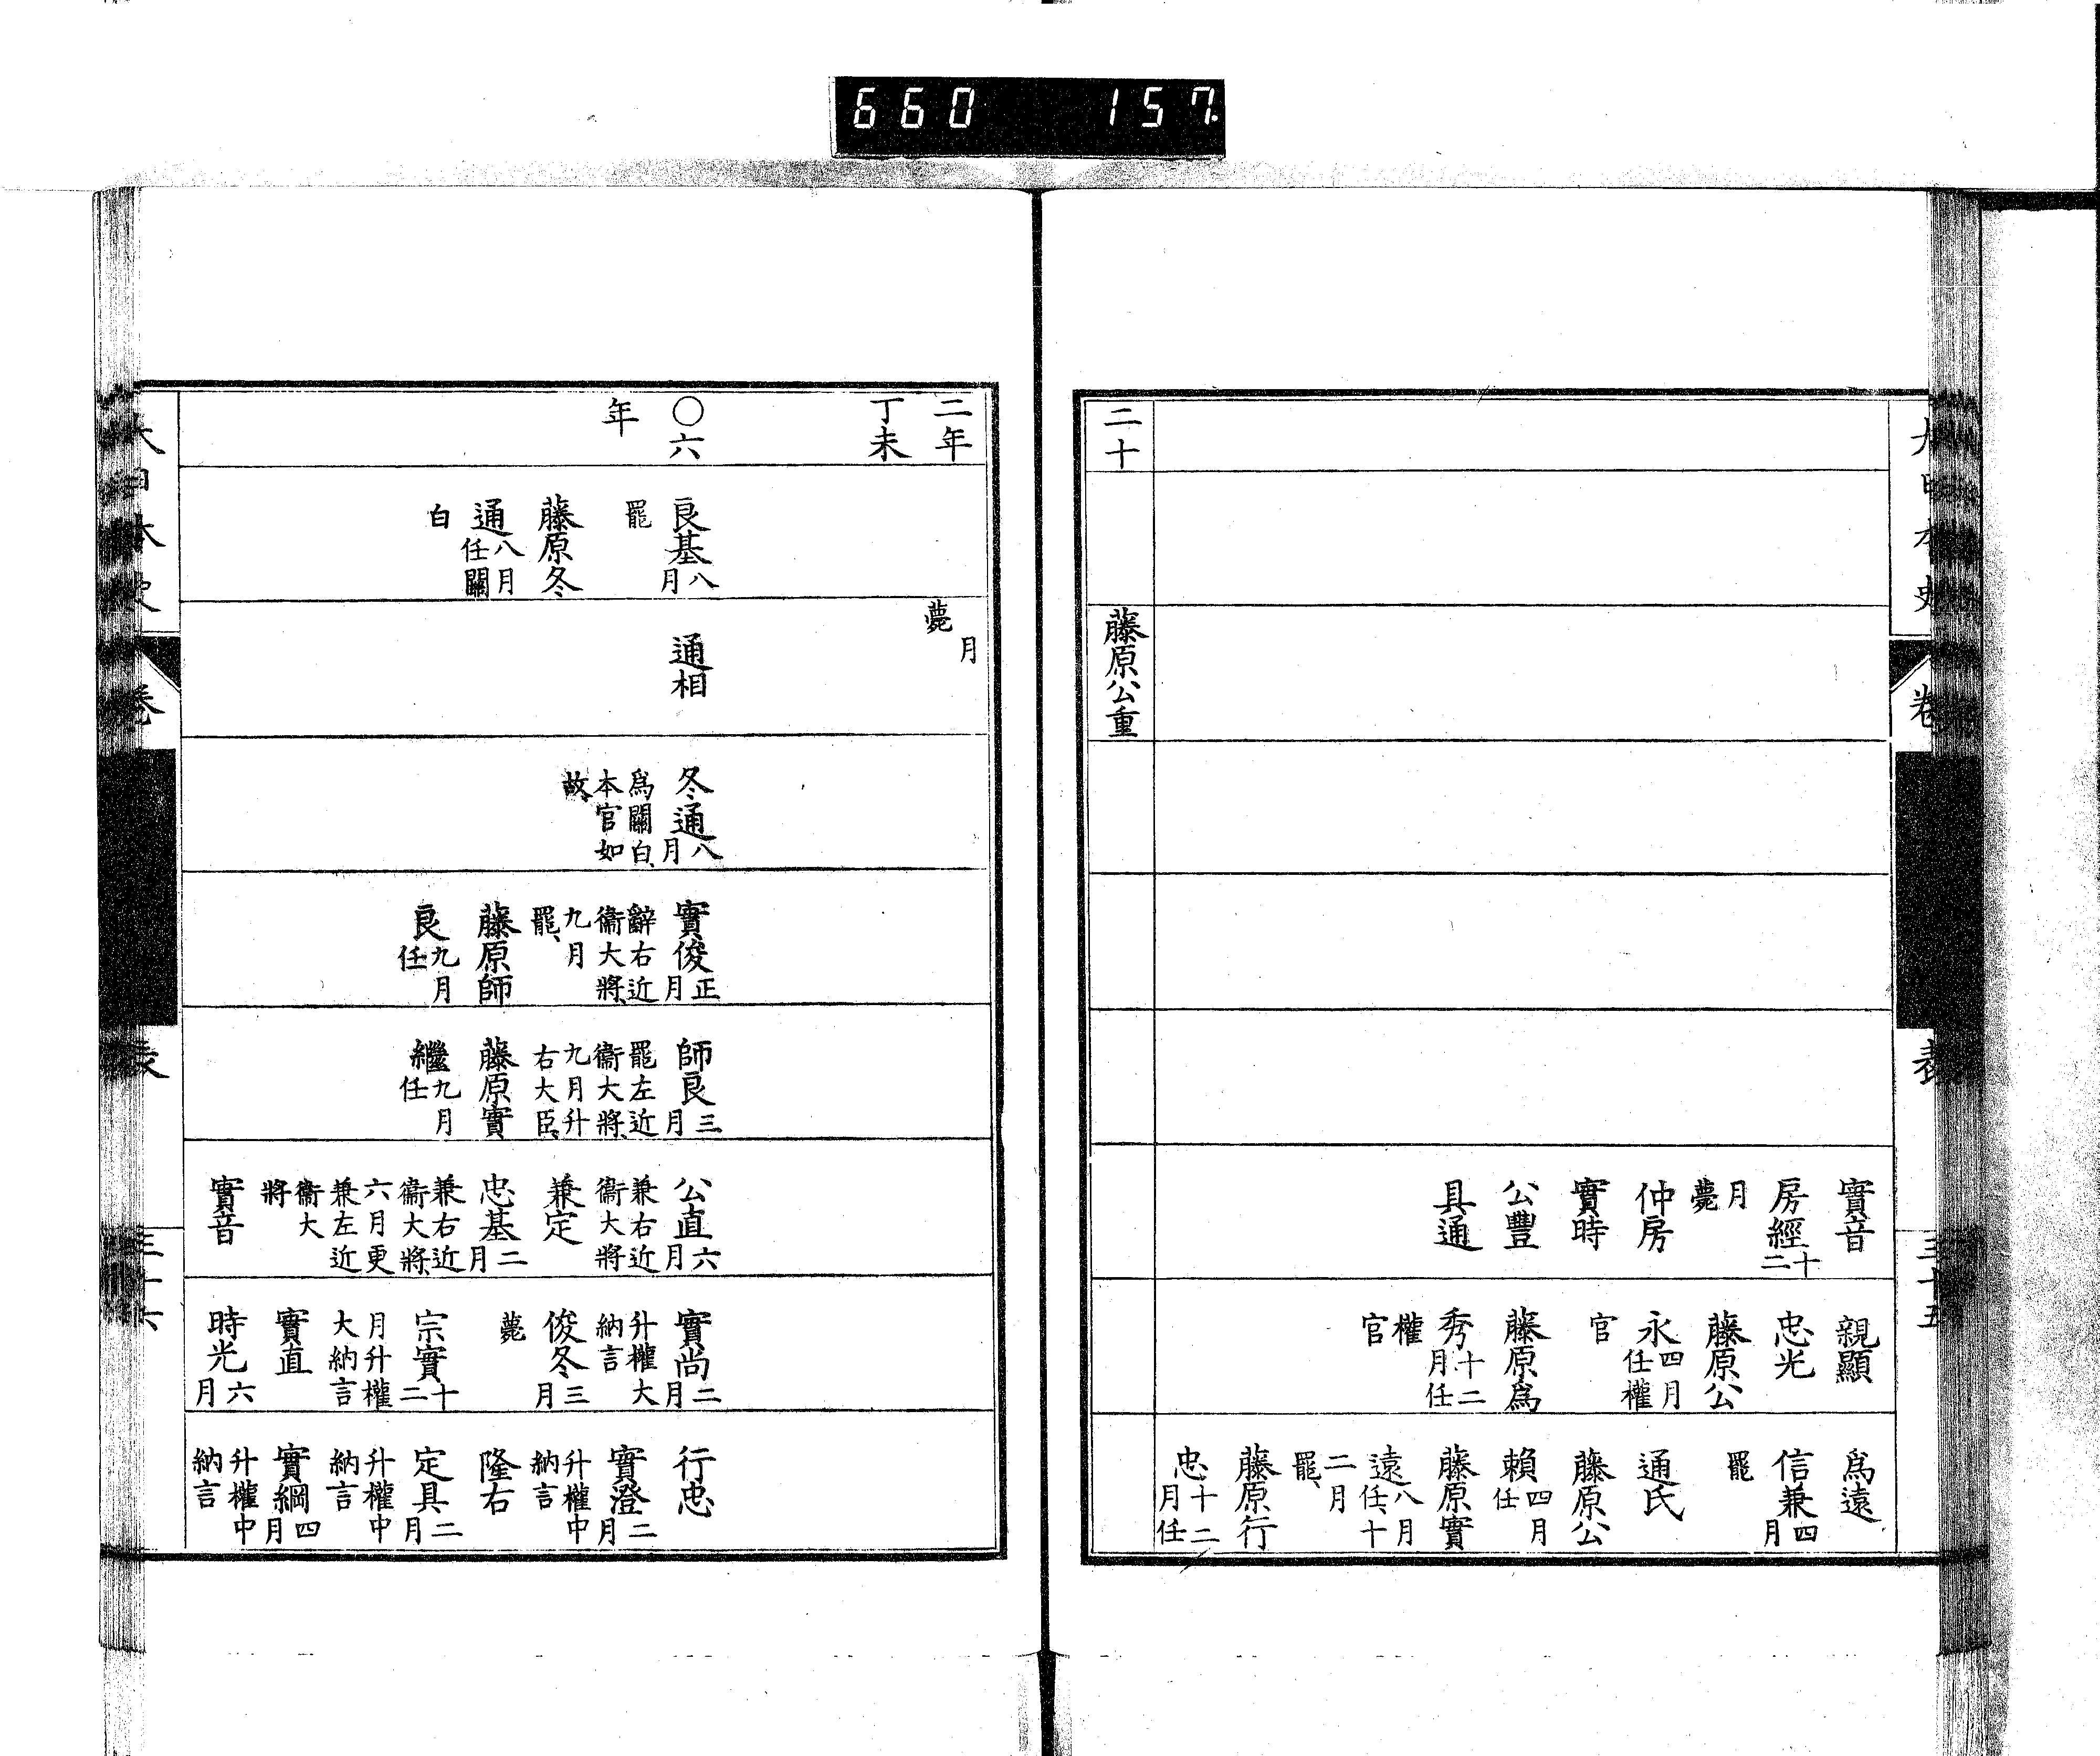 660 157.
大日本史
卷
表
三十五
實音
房經十二
月薨
仲房
實時
公豐
具通
親顯
忠光
藤原公
永四月任權
官
藤原爲
秀十二月任
權
官
爲遠
信兼四月
罷
通氏
藤原公
賴四月任
藤原實
遠八月任、十
二月
罷、
藤原行
忠十二月任
二十
藤原公重
二年
丁未
月
薨
〇六
年
良基八月
罷
藤原冬
通八月任關
白
通相
冬通八月
爲關白、
本官如
故、
實俊正月
辭右近
衞大將、
九月
罷、
藤原師
良九月任
師良三月
罷左近
衞大將、
九月升
右大臣、
藤原實
繼九月任
公直六月
兼右近
衞大將
兼定
忠基二月
兼右近
衞大將、
六月更
兼左近
衞大
將
實音
實尚二月
升權大
納言
俊冬三月
薨
宗實十二
月升權
大納言
實直
時光六月
行忠
實澄二月
升權中
納言
隆右
定具二月
升權中
納言
實綱四月
升權中
納言
大日本史
卷
表
三十六